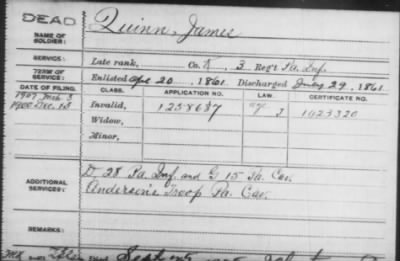 DEAD
NAME OF SOLDIER: Quinn, James
SERVICE: Late rank, Co. K, 3 Reg't Pa. Inf.
TERM OF SERVICE: Enlisted Apl 20, 1861 Discharged July 29, 1861
DATE OF FILING. CLASS. APPLICATION NO. LAW. CERTIFICATE NO.
1907 Mch 8
1900 Dec. 18 Invalid, 1258637 1025320
Widow,
Minor,
ADDITIONAL SERVICES: D 28 Pa. Inf. and G 15 Pa. Cav.
Anderson's Troop Pa. Cav.
REMARKS: